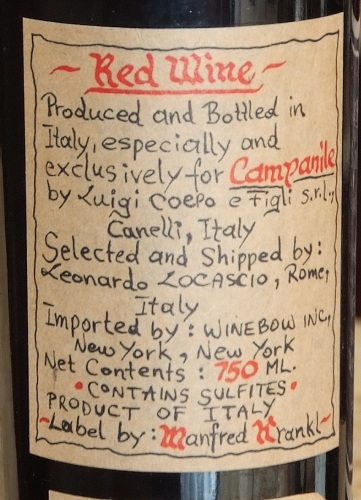 ~ Red Wine ~
Produced and Bottled in
Italy, especially and
exclusively for Campanile
by Luigi Coppo e Figli s.r.l.,
Canelli, Italy
Selected and Shipped by:
Leonardo LOCASCIO, Rome,
Italy
Imported by: WINEBOW INC,
New York, New York
Net Contents: 750 ML.
• CONTAINS SULFITES •
PRODUCT OF ITALY
~Label by: Manfred Krankl~